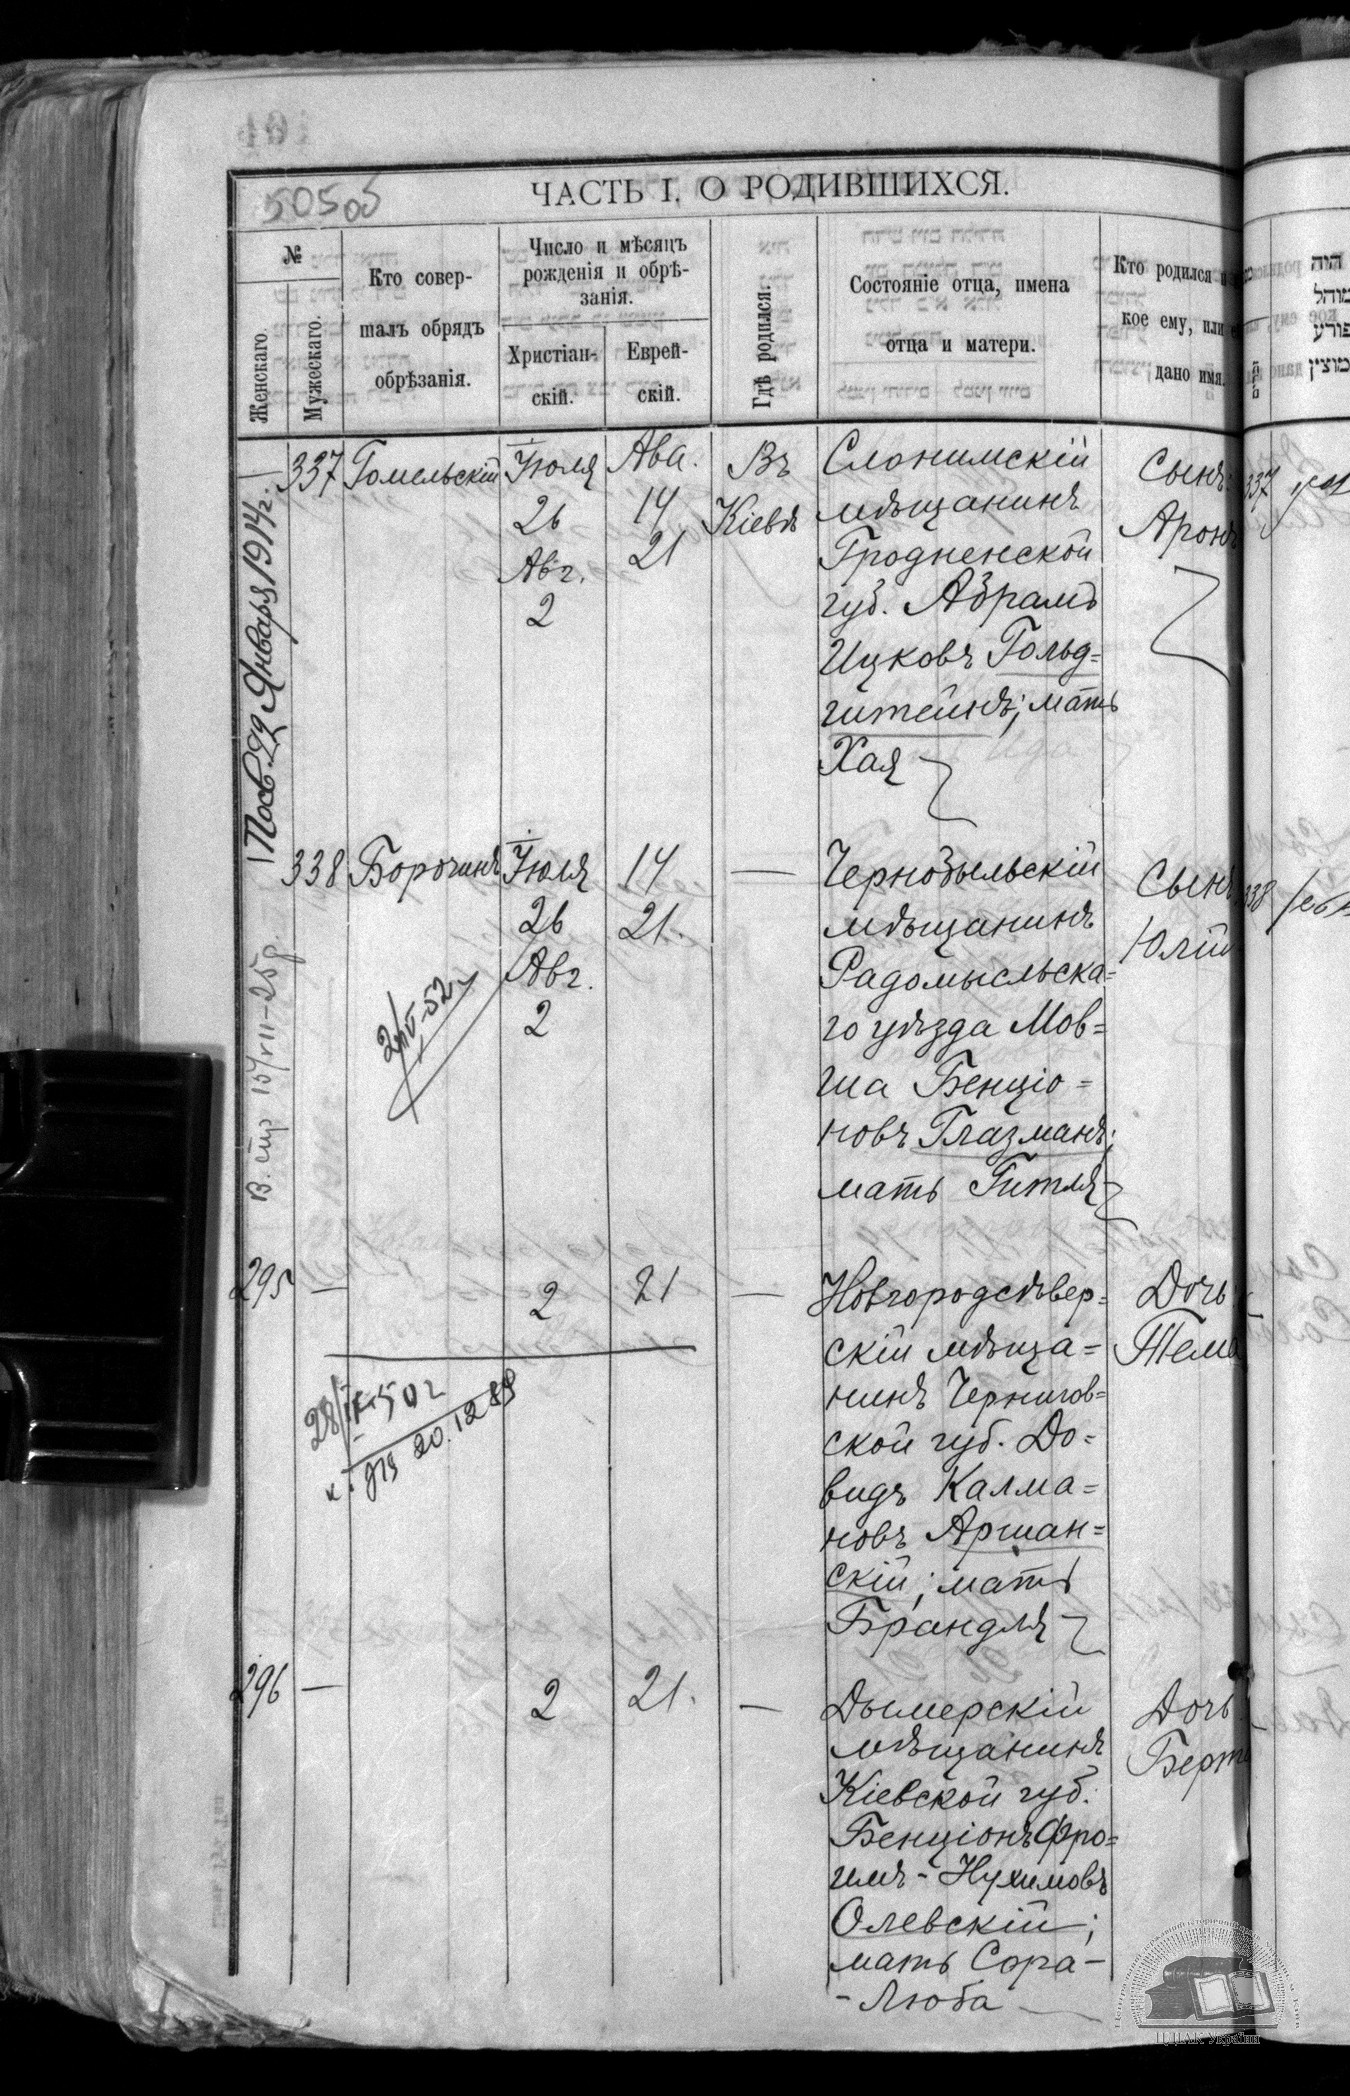 505об
ЧАСТЬ I. О РОДИВШИХСЯ.
№
Женскаго.
Мужескаго.
Кто совер-
шалъ обрядъ
обрѣзанія.
Число и мѣсяцъ
рожденія и обрѣ-
занія.
Христіан-
скій.
Еврей-
скій.
Гдѣ родился.
Состояніе отца, имена
отца и матери.
Кто родился и
кое ему, или
дано имя.
—
337
Гомельскій
Іюля
26
Авг.
2
Ава.
14
21
Въ
Кіевѣ
Слонимскій
мѣщанинъ
Гродненской
губ. Абрамъ
Ицковъ Гольд=
штейнъ; мать
Хая
Сынъ:
Аронъ
337
Января 1914г.
338
Борочинъ
Іюля
26
Авг.
2
14
21.
—
Чернобыльскій
мѣщанинъ
Радомысльска=
го уѣзда Мов=
ша Бенціо=
новъ Глазманъ;
мать Гитля
Сынъ
Юлій
338
295
—
2
21
—
Новгородсѣвер=
скій мѣща=
нинъ Чернигов=
ской губ. До=
видъ Калма=
новъ Аршан=
скій; мать
Брандля
Дочь
Тема
20.12.89
296
—
2
21.
—
Дымерскій
мѣщанинъ
Кіевской губ.
Бенціонъ Фро=
имъ-Нухимовъ
Олевскій;
мать Сора-
-Люба
Дочь
ЦДІАК України